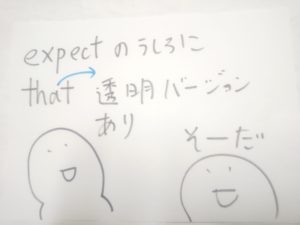 expect のうしろに
that 透明バージョン
あり
そーだ